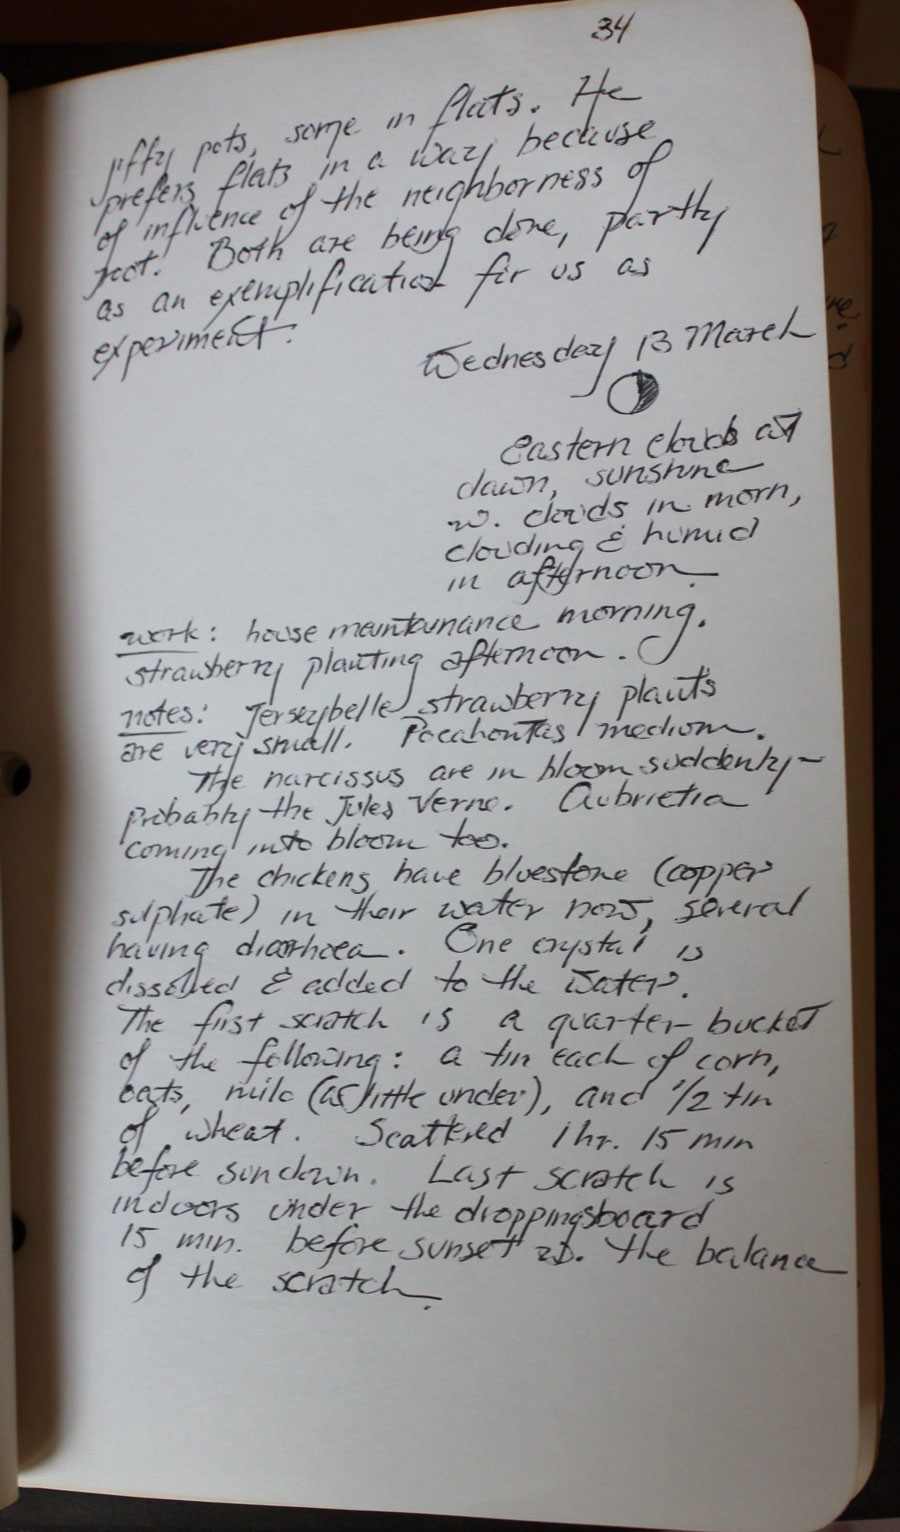 34
jiffy pots, some in flats. He
prefers flats in a way because
of influence of the neighborness of
root. Both are being done, partly
as an exemplification for us as
experiment.
Wednesday 13 March
Eastern clouds at
dawn, sunshine
w. clouds in morn,
clouding & humid
in afternoon.
work: house maintanance morning.
strawberry planting afternoon.
notes: Jerseybelle strawberry plants
are very small. Pocahontas medium.
The narcissus are in bloom suddenly -
probably the Jules Verne. Aubrietia
coming into bloom too.
The chickens have bluestone (copper
sulphate) in their water now, several
having diarrhoea. One crystal is
dissolved & added to the water.
The first scratch is a quarter-bucket
of the following: a tin each of corn,
oats, milo (a little under), and 1/2 tin
of wheat. Scattered 1 hr. 15 min
before sundown. Last scratch is
indoors under the droppingsboard
15 min. before sunset w. the balance
of the scratch.